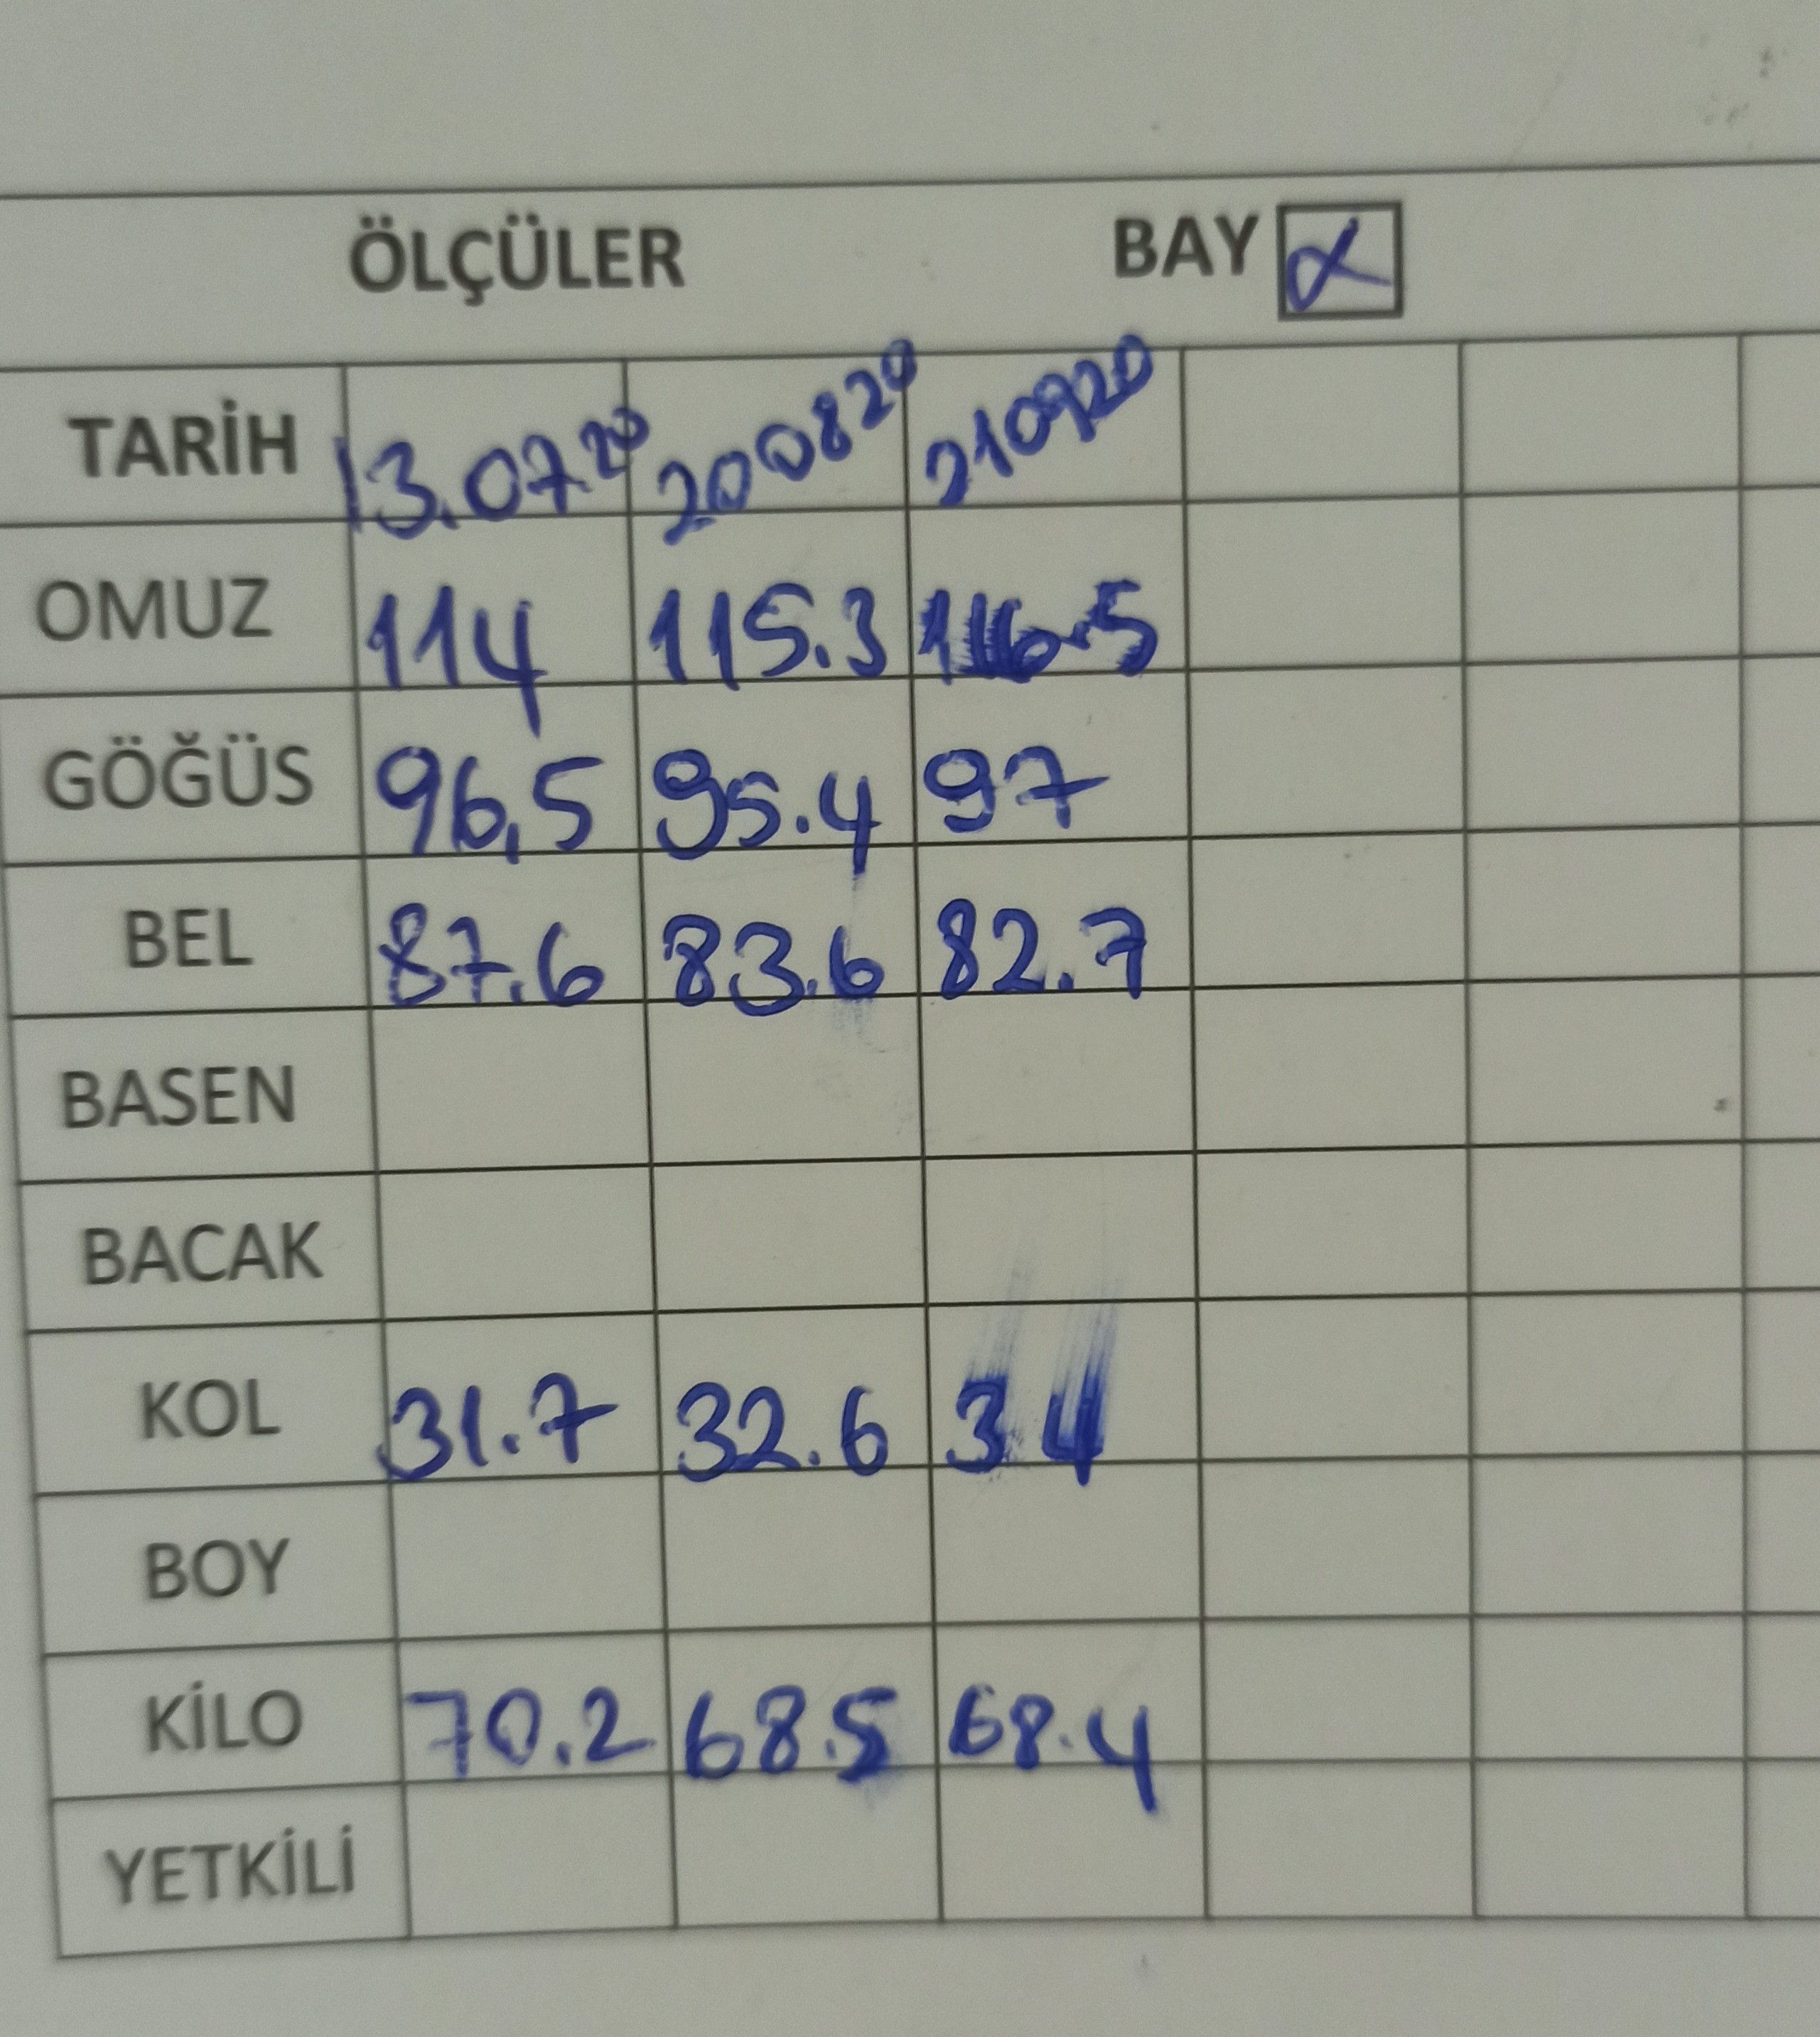 ÖLÇÜLER BAY
TARİH 13.07.20 200820 210920
OMUZ 114 115.3 116.5
GÖĞÜS 96,5 95.4 97
BEL 87.6 83.6 82.7
BASEN
BACAK
KOL 31.7 32.6 34
BOY
KİLO 70.2 68.5 68.4
YETKİLİ